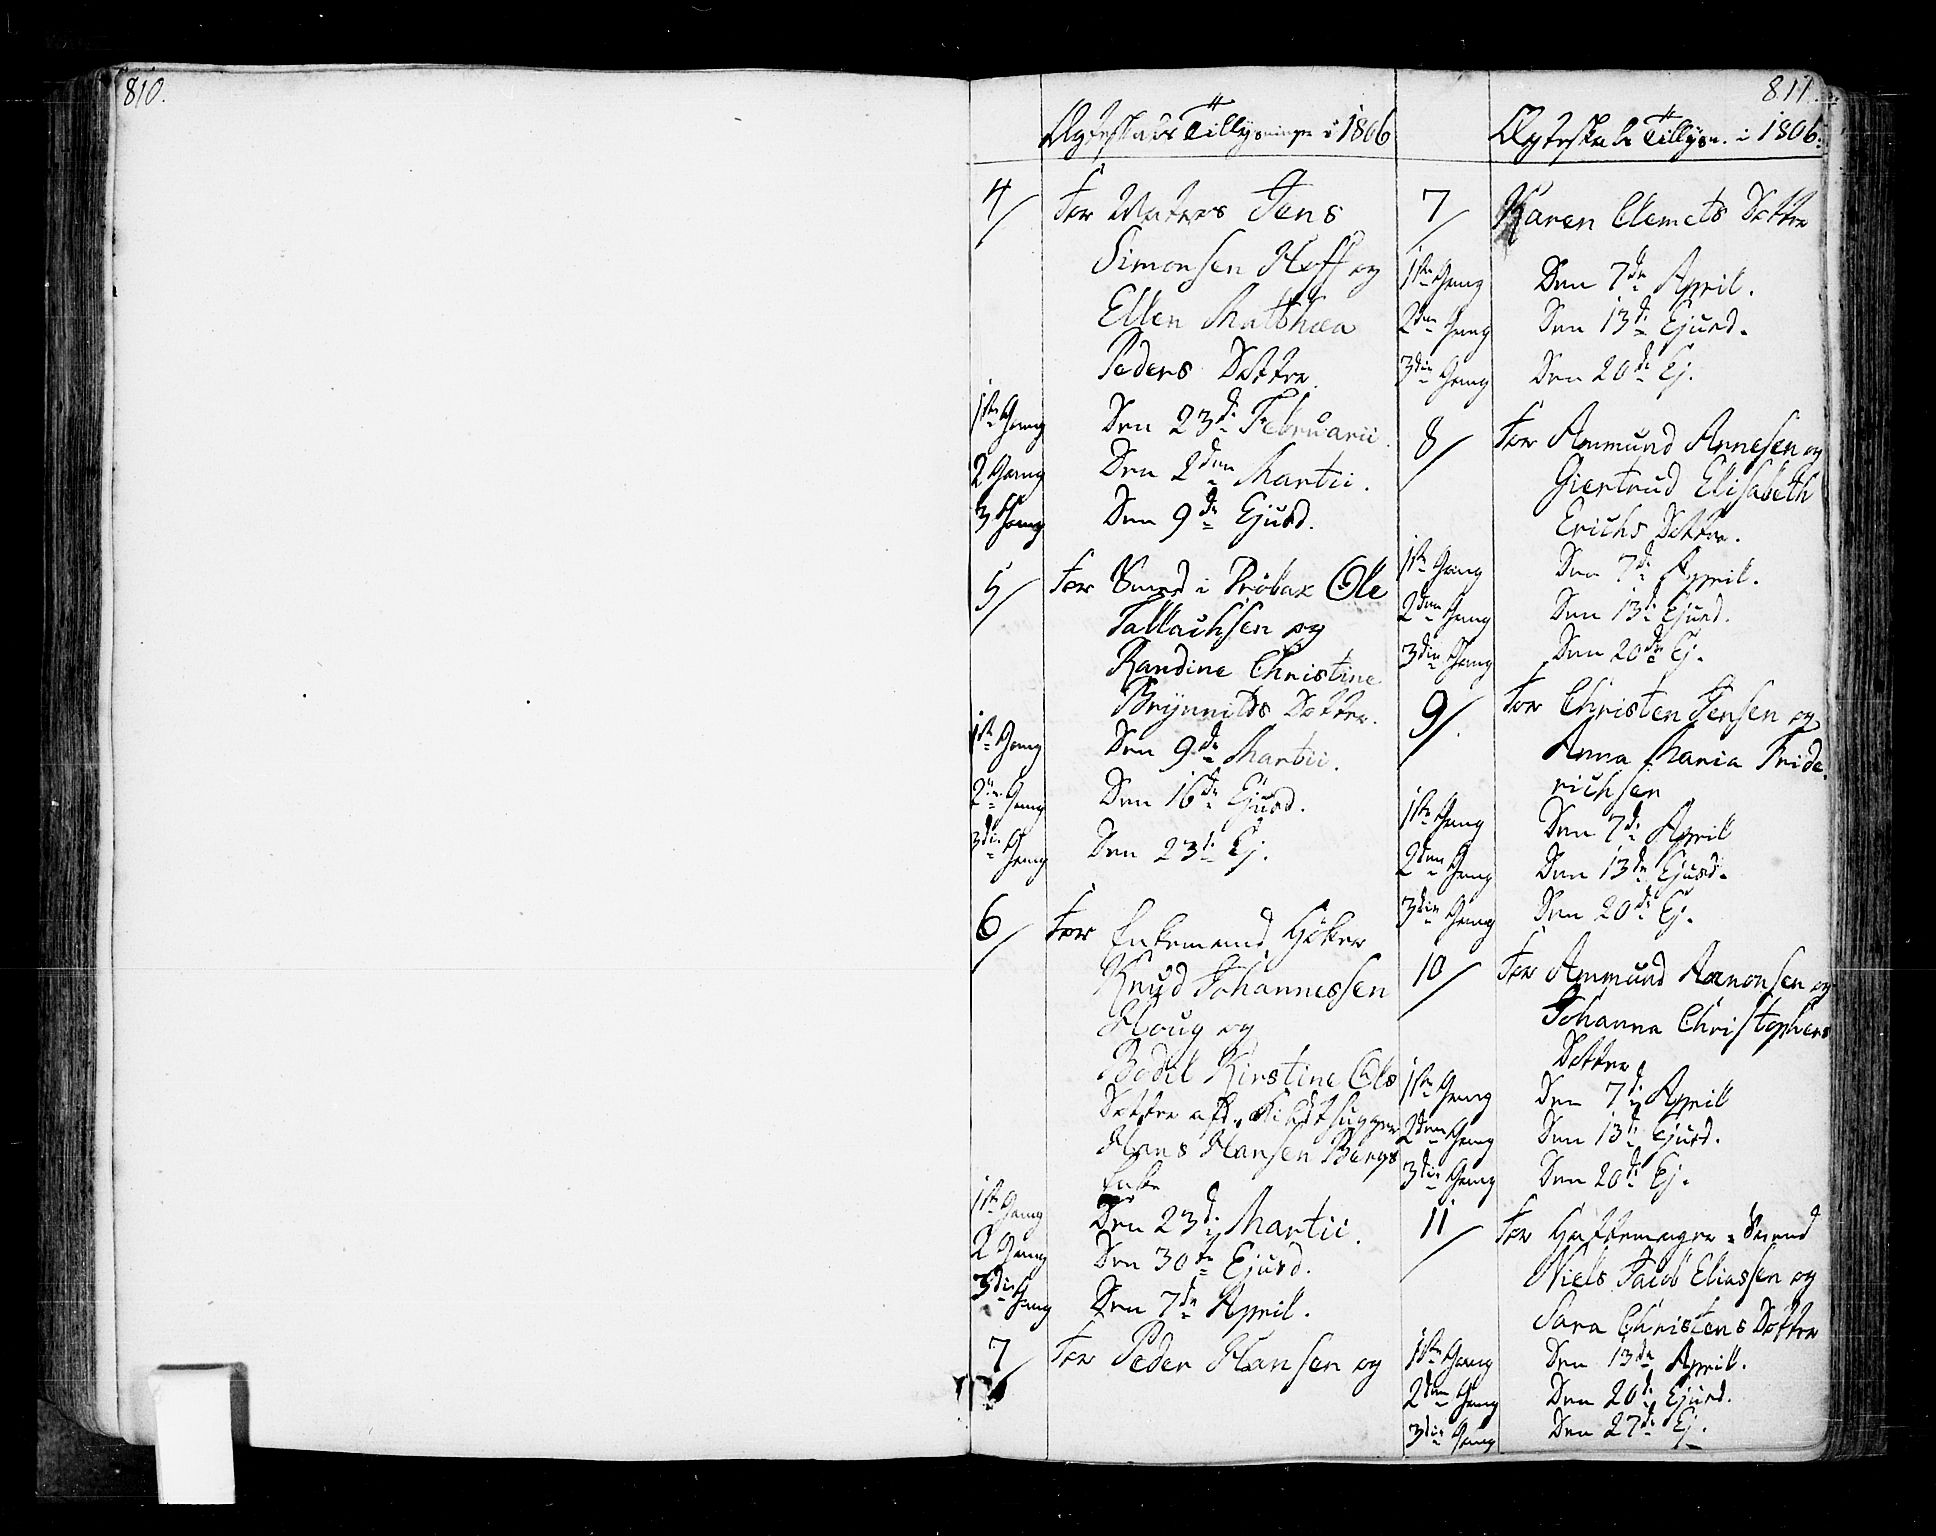 810.
811.
Ægteskabs Tillysninger i 1806
4/ For Matros Jens
Simonsen Hoff og
Ellen Mathæa
Peders Datter
1ste Gang Den 23de Februarii.
2 Gang Den 2den Martii.
3 Gang Den 9de Ejusd.
5/ For Smed i Dröbak Ole
Tallachsen og
Randine Christine
Brÿnnilds Datter.
1ste Gang Den 9de Martii.
2den Gang Den 16de Ejusd.
3die Gang Den 23de Ej.
6/ For Enkemand Höker
Knud Johannessen
Houg og
Bodil Kirstine Ols
Datter afd.
Hans Hansen Bergs
Enke
1ste Gang Den 23de Martii.
2 Gang Den 30te Ejusd.
3die Gang Den 7de April.
7/ For Peder Hansen og
Ægteskabs Tillysn. i 1806.
7/ Karen Clemets Datter
1ste Gang Den 7de April.
2den Gang Den 13de Ejusd.
3die Gang Den 20de Ej.
8/ For Ammund Arnesen og
Giertrud Elisabeth
Erichs Datter.
1ste Gang Den 7de April.
2den Gang Den 13de Ejusd.
3die Gang Den 20de Ej.
9/. For Christen Jensen og
Anna Maria Fride-
richsen
1ste Gang Den 7de April
2den Gang Den 13de Ejusd.
3die Gang Den 20de Ej.
10/ For Ammund Aanonsen og
Johanna Christophers
Datter
1ste Gang Den 7de April
2den Gang Den 13de Ejusd.
3die Gang Den 20de Ej.
11/ For Hattemager-Svend
Niels Jacob Eliassen og
Sara Christens Datter
1ste Gang Den 13de April.
2den Gang Den 20de Ejusd.
3die Gang Den 27de Ej.